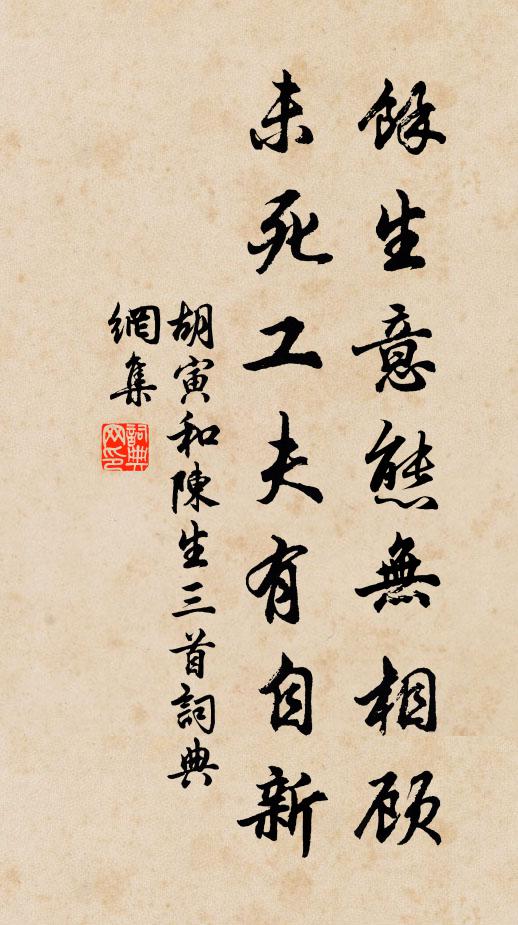 餘生意態無相顾
未死工夫有自新
胡寅和陳生三首詞典
網集
詞典網印